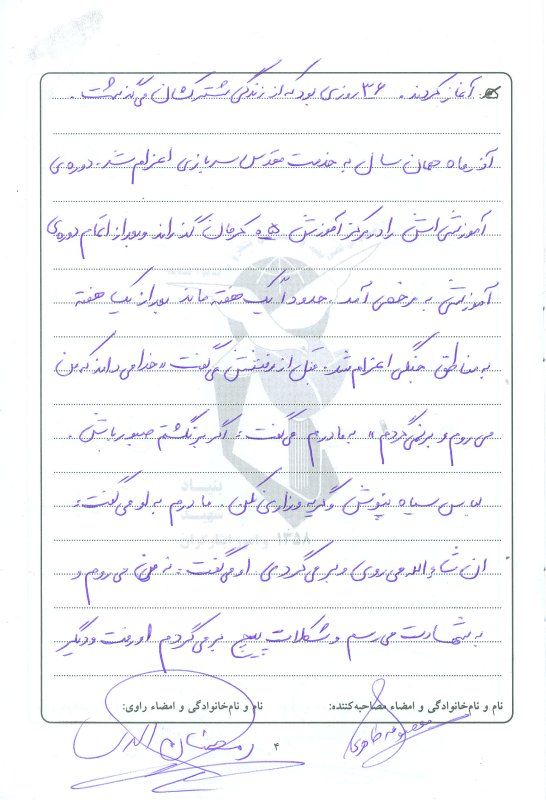 آغاز کردند. ۳۶ روزی بود که از زندگی مشترکشان می‌گذشت.
آذرماه همان سال به خدمت مقدس سربازی اعزام شد. دوره‌ی
آموزشی‌اش را در مرکز آموزش ۰۵ کرمان گذراند و بعد از اتمام دوره‌ی
آموزشی به مرخصی آمد. حدوداً یک هفته ماند بعد از یک هفته
به مناطق جنگی اعزام شد. قبل از رفتنش می‌گفت «خدا می‌داند که من
می روم و برنمی‌گردم» به مادرم می‌گفت: اگر برنگشتم صبور باش.
لباس سیاه نپوش و گریه و زاری نکن. مادرم به او می‌گفت:
ان شاء الله می روی و بر می گردی او می‌گفت: نه من می روم و
به شهادت می رسم و مشکلات پیچ بر می گردم او رفت و دیگر
نام و نام‌خانوادگی و امضاء مصاحبه‌کننده:
نام و نام‌خانوادگی و امضاء راوی:
معصومه
رمضان
۴
بنیاد
شهید
۱۳۵۸
و امور ایثارگران